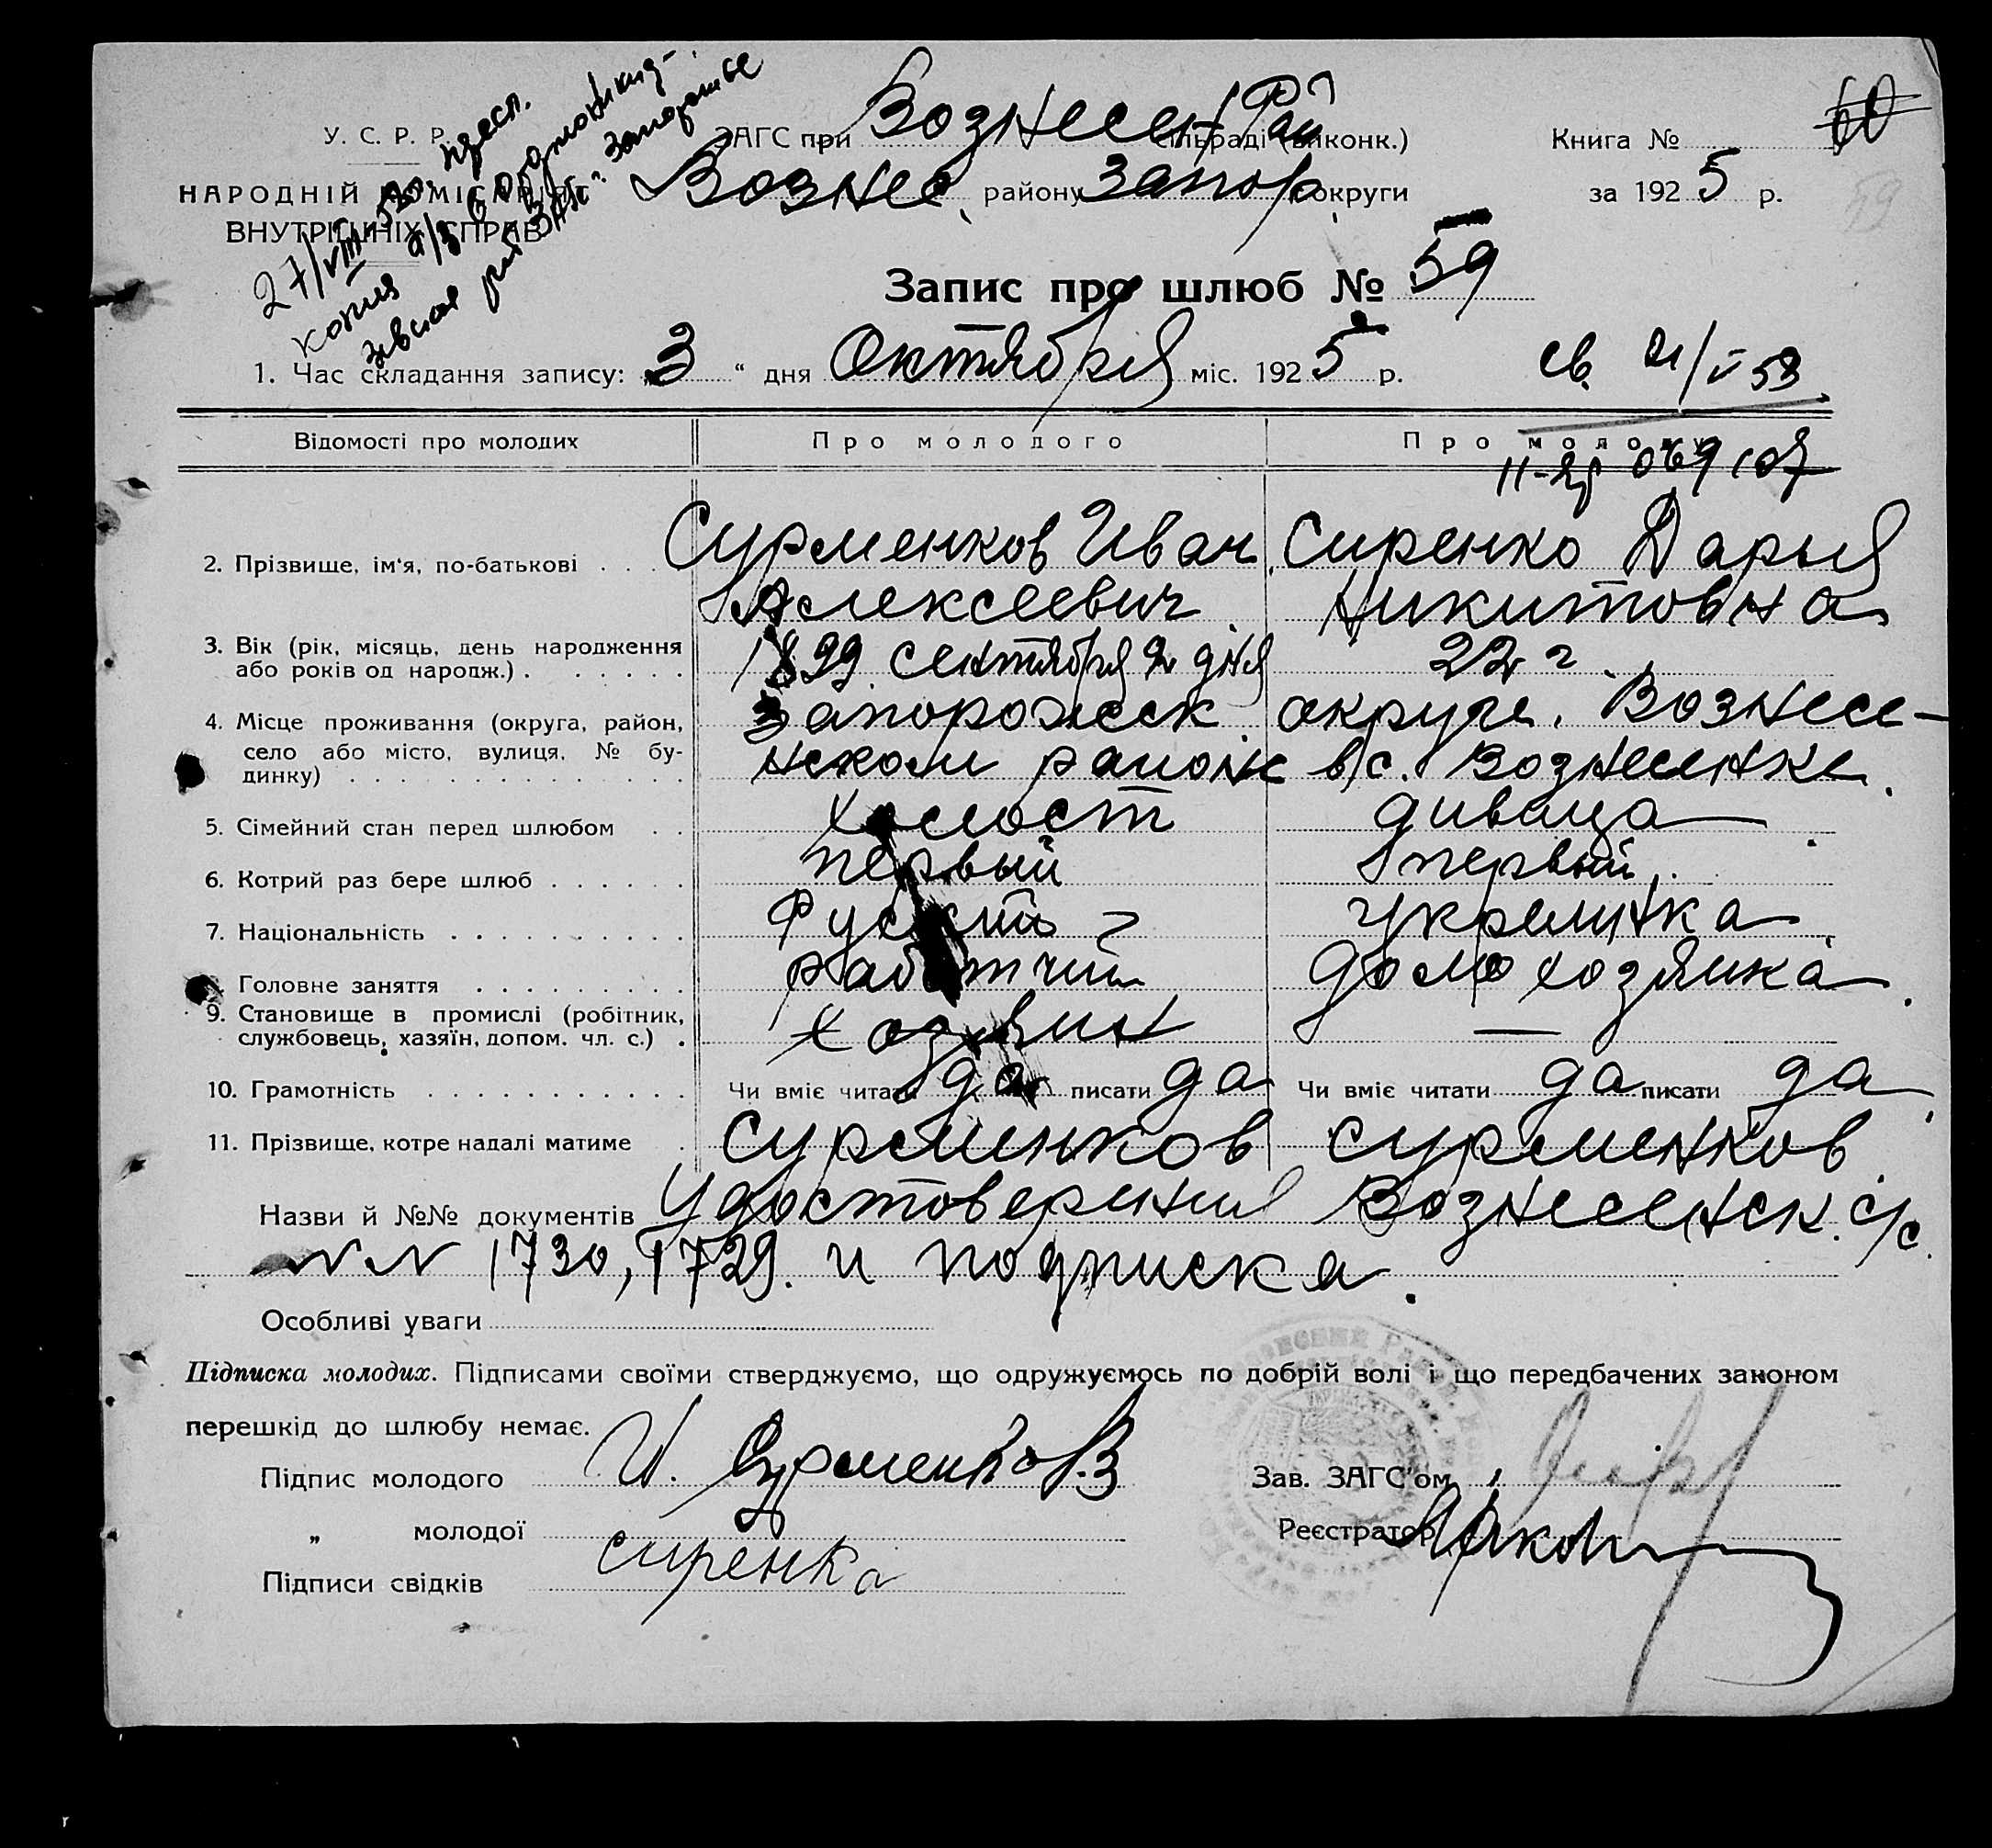 У. С. Р. Р.
НАРОДНІЙ КОМІСАРІЯТ
ВНУТРІШНІХ СПРАВ
27/VIII-53
копия а/з
ЗАГС при Вознесен Рай сільраді (виконк.)
Вознес. району Запор. округи
Книга № 60
за 1925 р.
59
Запис про шлюб № 59
1. Час складання запису: „3“ дня Октября міс. 1925 р.
св. 21/V 53
II-
Відомості про молодих Про молодого Про молоду
2. Прізвище, ім'я, по-батькові . . . Сурменков Иван Сиренко Дарья
Алексеевич Никитовна
3. Вік (рік, місяць, день народження
або років од народж.) . . . . . . 1899 сентября 2 дня 22 г.
4. Місце проживання (округа, район, Запорожск округе, Вознесе-
село або місто, вулиця, № бу- нском районе в с. Вознесенке.
динку) . . . . . . . . . . . . . .
5. Сімейний стан перед шлюбом . . холост дивица
6. Котрий раз бере шлюб . . . . . . первый первый
7. Національність . . . . . . . . . . Руский украинка
Головне заняття . . . . . . . . . работчий домохозяика
9. Становище в промислі (робітник,
службовець, хазяїн, допом. чл. с.) . хозяин —
10. Грамотність . . . . . . . . . . . . Чи вміє читати да писати да Чи вміє читати да писати да
11. Прізвище, котре надалі матиме . Сурменков Сурменков
Назви й №№ документів Удостоверения Вознесенск. с/с.
NN 1730, 1729. и подписка.
Особливі уваги
Підписка молодих. Підписами своїми стверджуємо, що одружуємось по добрій волі і що передбачених законом
перешкід до шлюбу немає.
Підпис молодого И. Сурменков
Зав. ЗАГС'ом
„ молодої Сиренка
Реєстратор
Підписи свідків